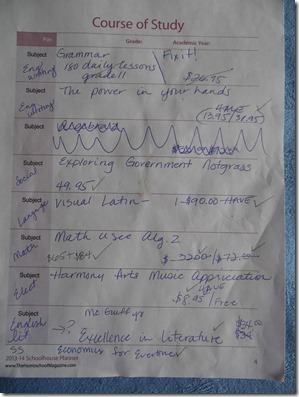 Course of Study
For: Grade: Academic Year:
Subject Grammar Fix it!
Eng/writing 180 daily lessons
grade 11 $24.95
Subject The power in your hands
Eng writing HAVE
13.95/38.95
Subject
Subject Exploring Government Notgrass
Social
49.95
Subject Visual Latin- 1-$90.00-HAVE
Language
Subject Math U see Alg. 2
Math $ 32.00 / $72.00
Subject Harmony Arts Music Appreciation
Elect HAVE
$8.95/Free
Subject Mc Guffeys
English
lit → ? Excellence in Literature $34.00
SS Economics for Everyone
2013-14 Schoolhouse Planner
www.TheHomeschoolMagazine.com